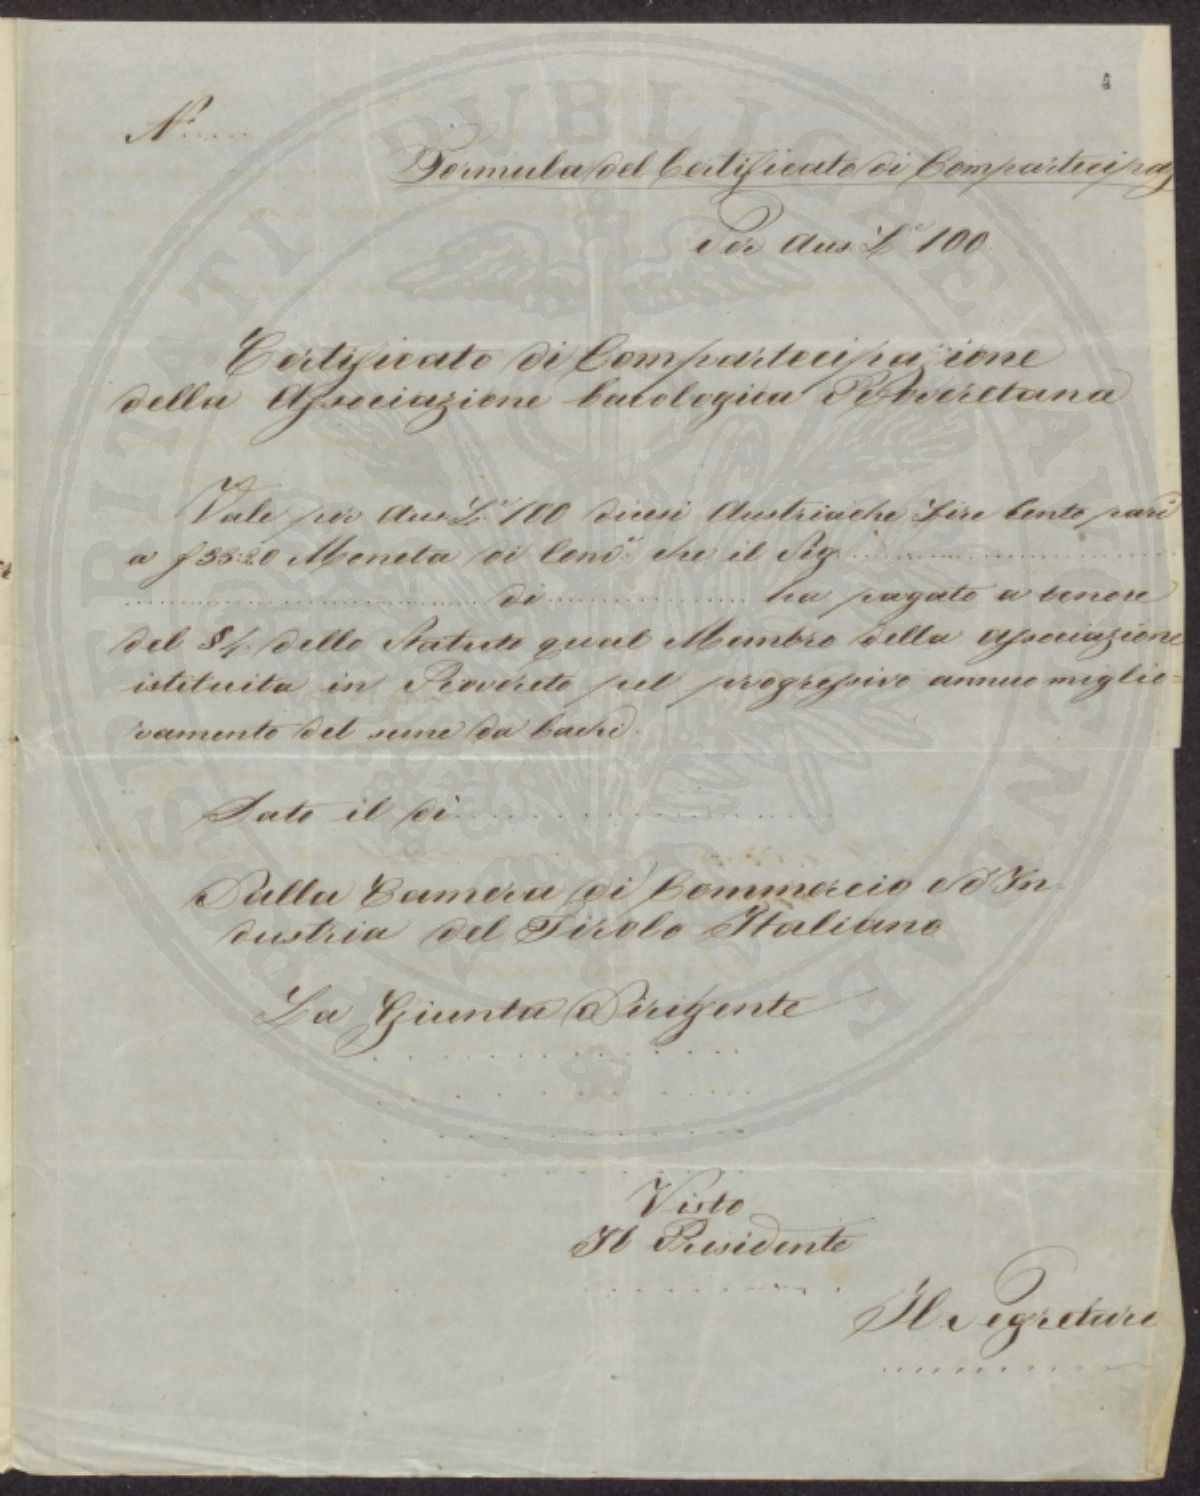 4
N.°....
Formula del Certificato di Compartecipaz
Per Aus. L.e 100.
Certificato di Compartecipazione
della Associazione bacologica Roveretana
Vale per Aus. L.e 100 dicesi Austriache Lire Cento pari
a f 33:20 Moneta di Conv.e che il Sig.
di ha pagato a tenore
del § 4. dello Statuto qual Membro della Associazione
istituita in Rovereto pel progressivo annuo miglio=
ramento del seme da bachi.
Dato il di
Dalla Camera di Commercio ed In-
dustria del Tirolo Italiano
La Giunta Dirigente
Visto
Il Presidente
Il Segretari
POSTERITATI PUBLICAE